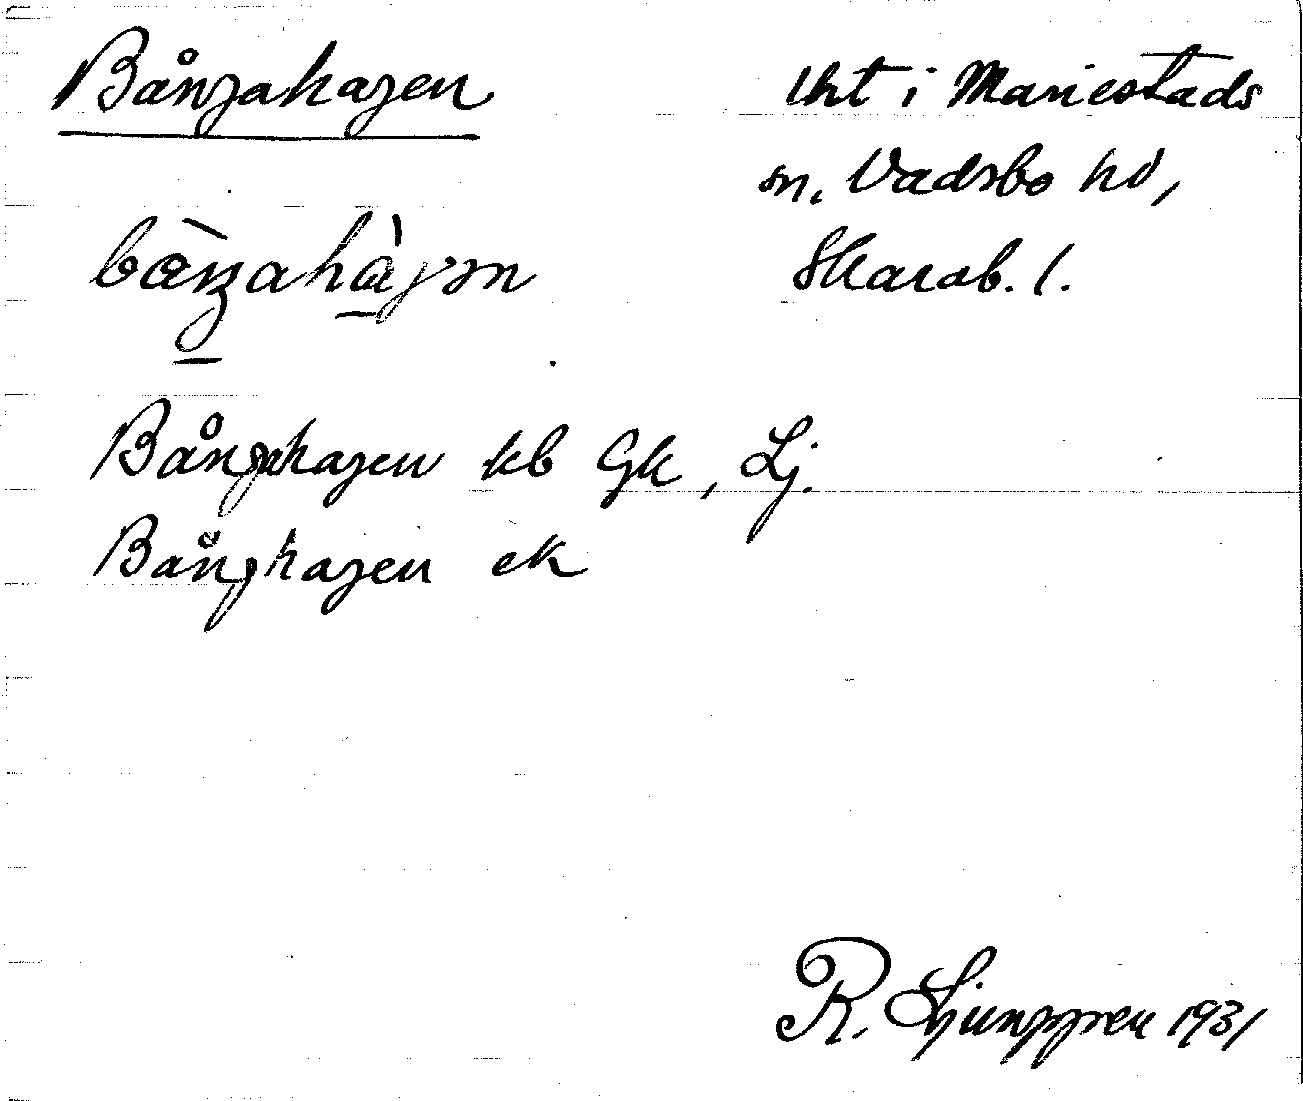 Bångahagen
lht i Mariestads
sn. Vadsbo hd,
Skarab. l.
Bångahagen kb Gk, Lj.
Bånghagen ek
R. Ljunggren 1931